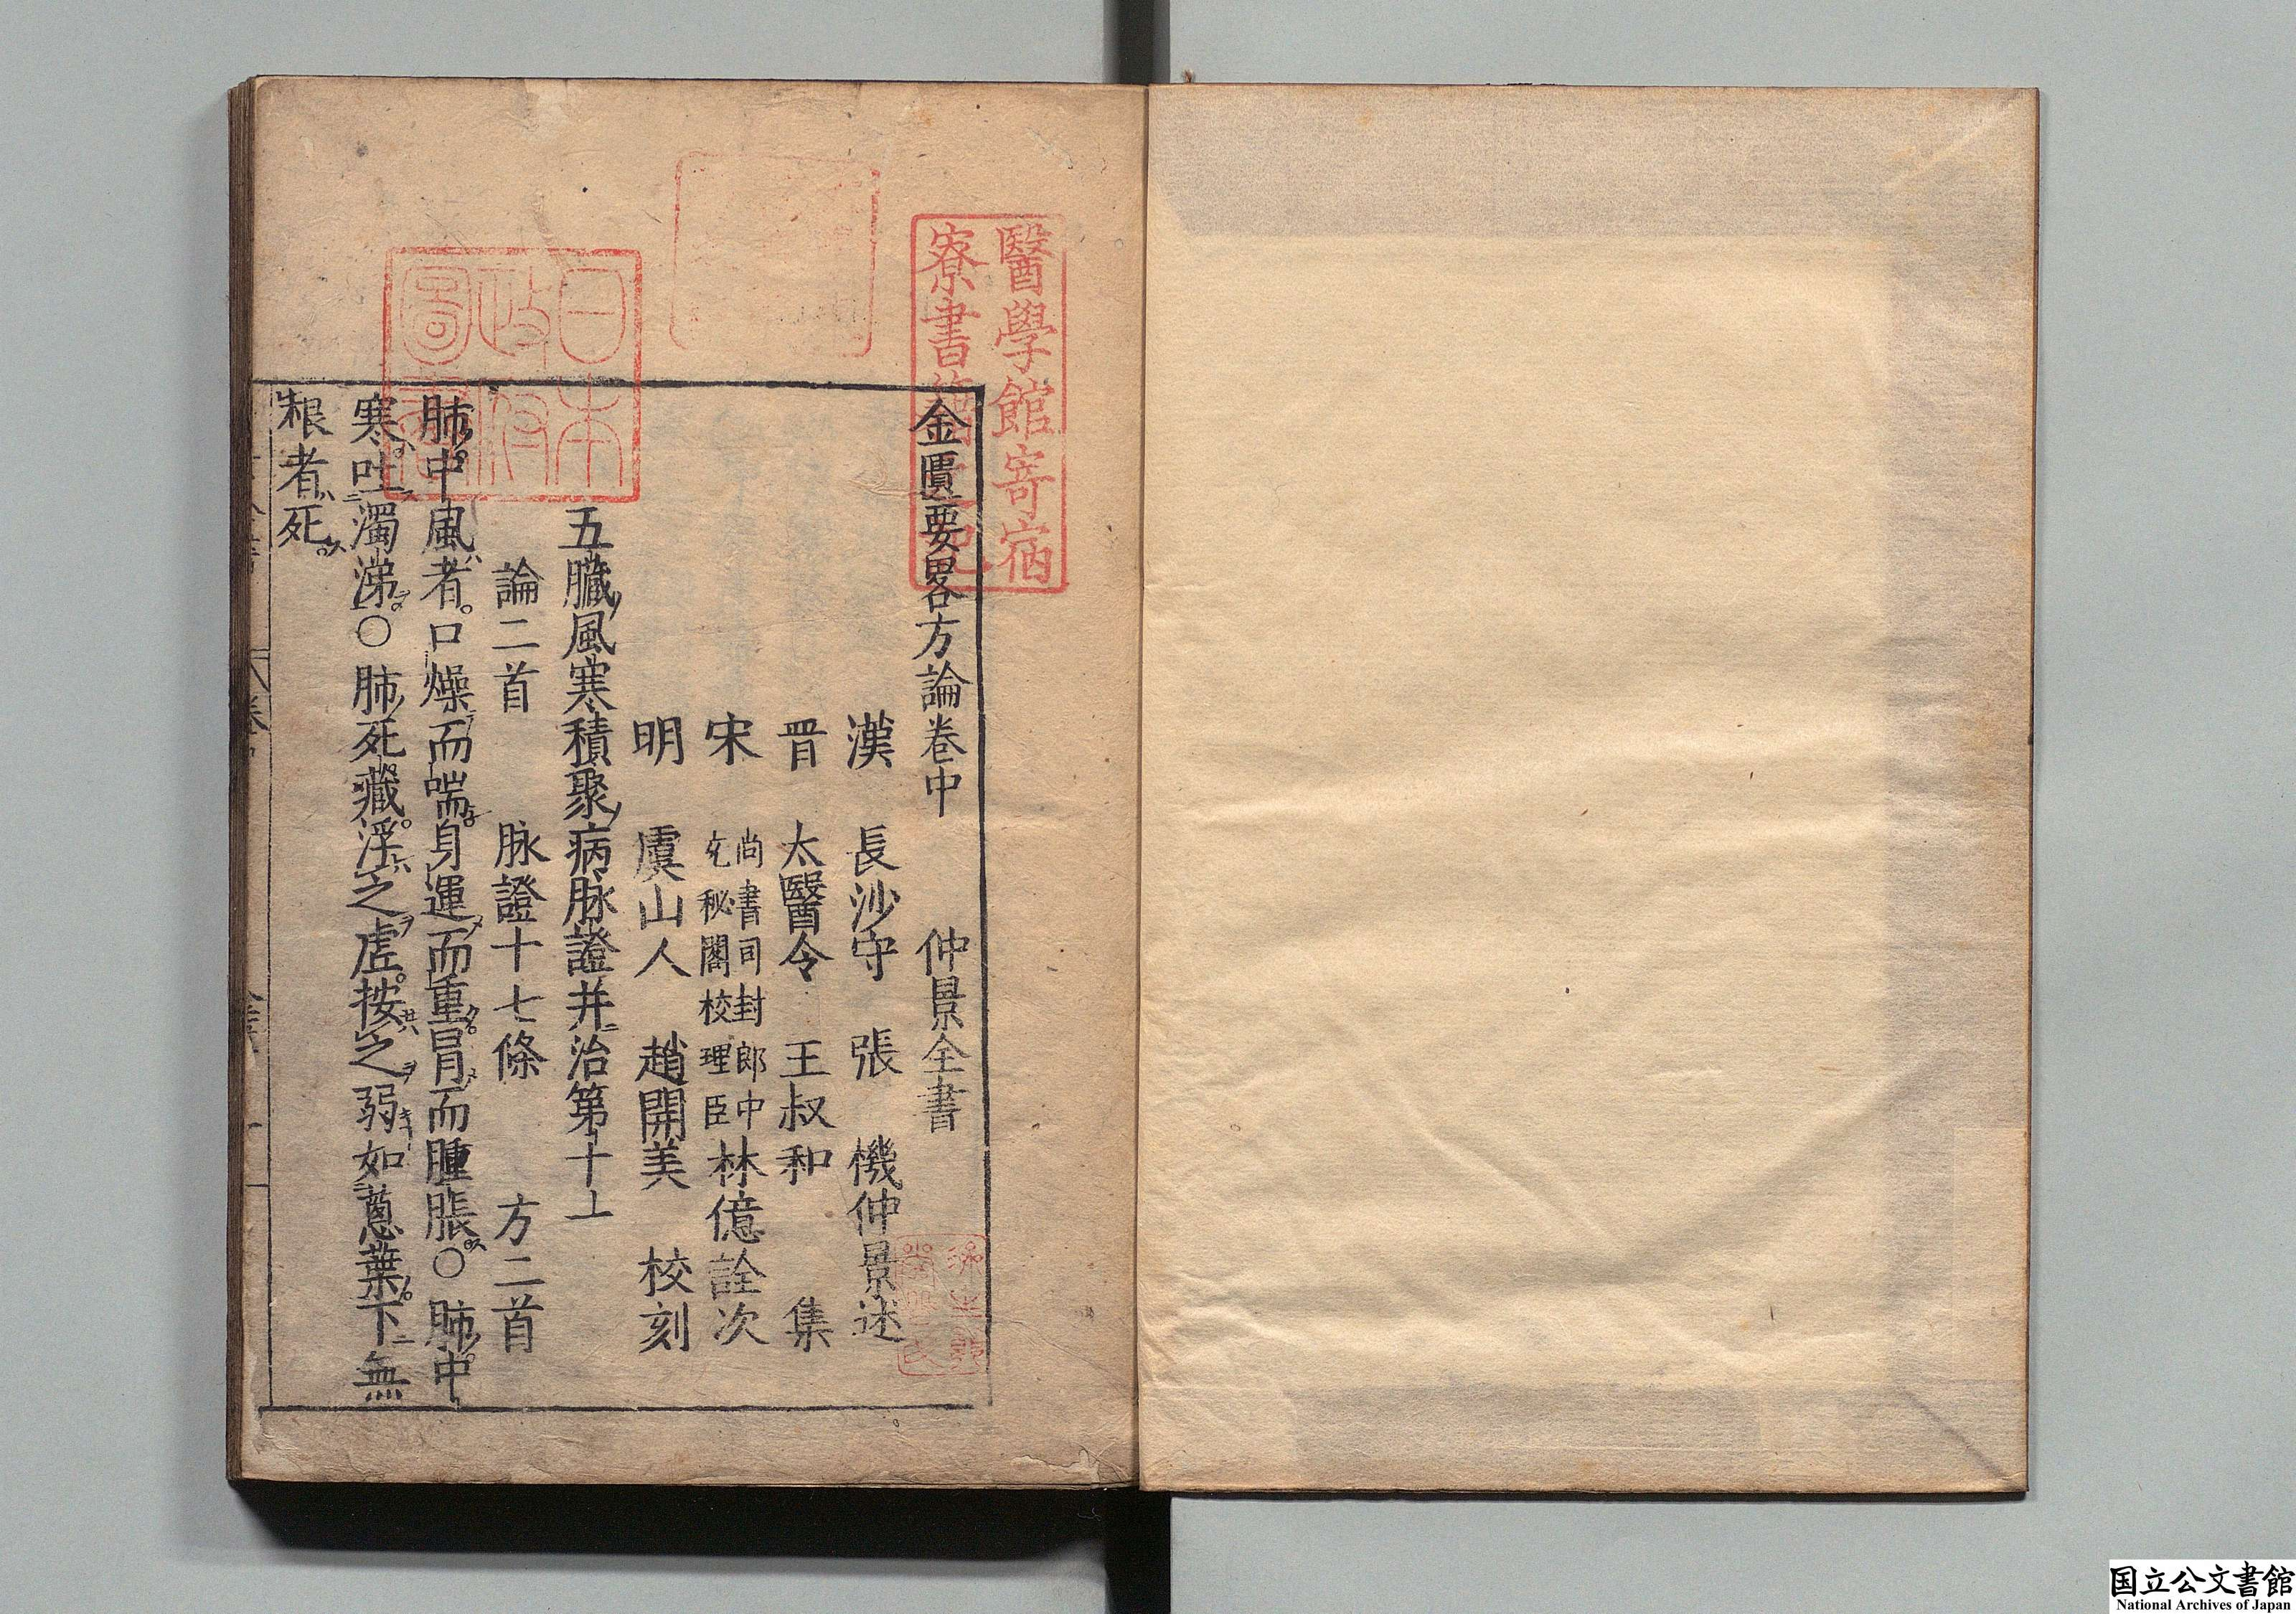 金匱要畧方論卷中　仲景全書
漢　長沙守　張　機仲景述
晉　太醫令　王叔和　集
宋　尚書司封郎中
充秘閣校理臣
林億詮次
明　虞山人　趙開美　校刻
五臟風寒積聚病脉證并治第十一
論二首　脉證十七條　方二首
肺中風者口燥而喘身運而重冒而腫脹〇肺中
寒吐濁涕〇肺死藏浮之虚按之弱如蔥葉下無
根者死
醫學館寄宿
寮書籍之記
日本
政府
圖書
国立公文書館
National Archives of Japan